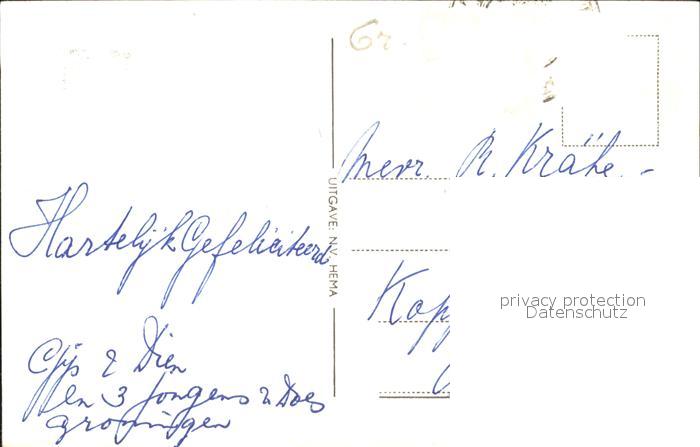 Hartelijk Gefeliciteerd
Gijs & Dien
en 3 jongens & Does
Groningen
UITGAVE: N.V. HEMA
Gr.
Mevr. R. Krähe. -
Kop
privacy protection
Datenschutz